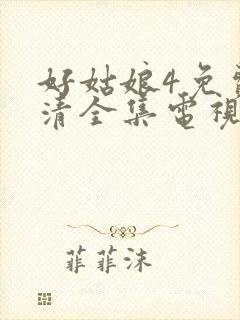 好姑娘4免費
清全集電視
菲菲沫